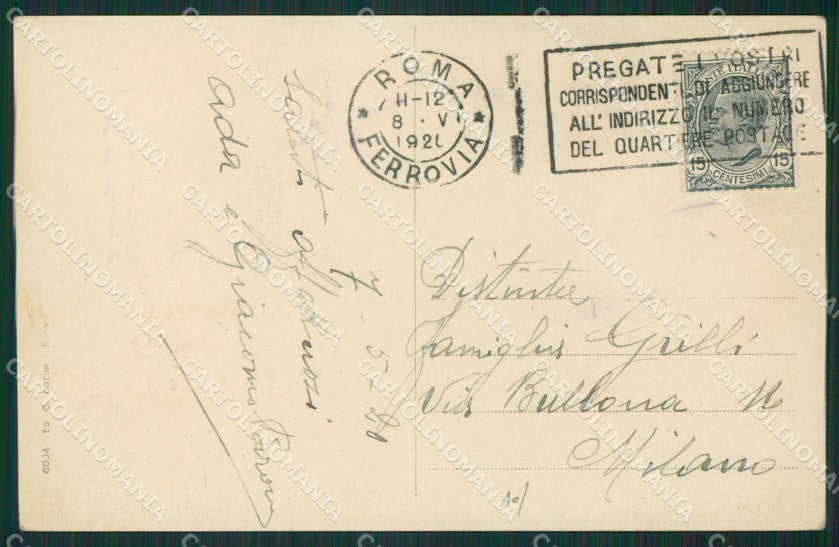 ROMA
11-12
8 · V
192
FERROVIA
PREGATE I VOSTRI
CORRISPONDENTI DI AGGIUNGERE
ALL' INDIRIZZO IL NUMERO
DEL QUARTIERE POSTALE
POSTE ITALIANE
15 15
CENTESIMI
Saluti affettuosi
Ada e Giacomo
7-5-20
Distinta
Famiglia Grilli
Via Bellona
Milano
8004 Ed. G.
CARTOLINOMANIA